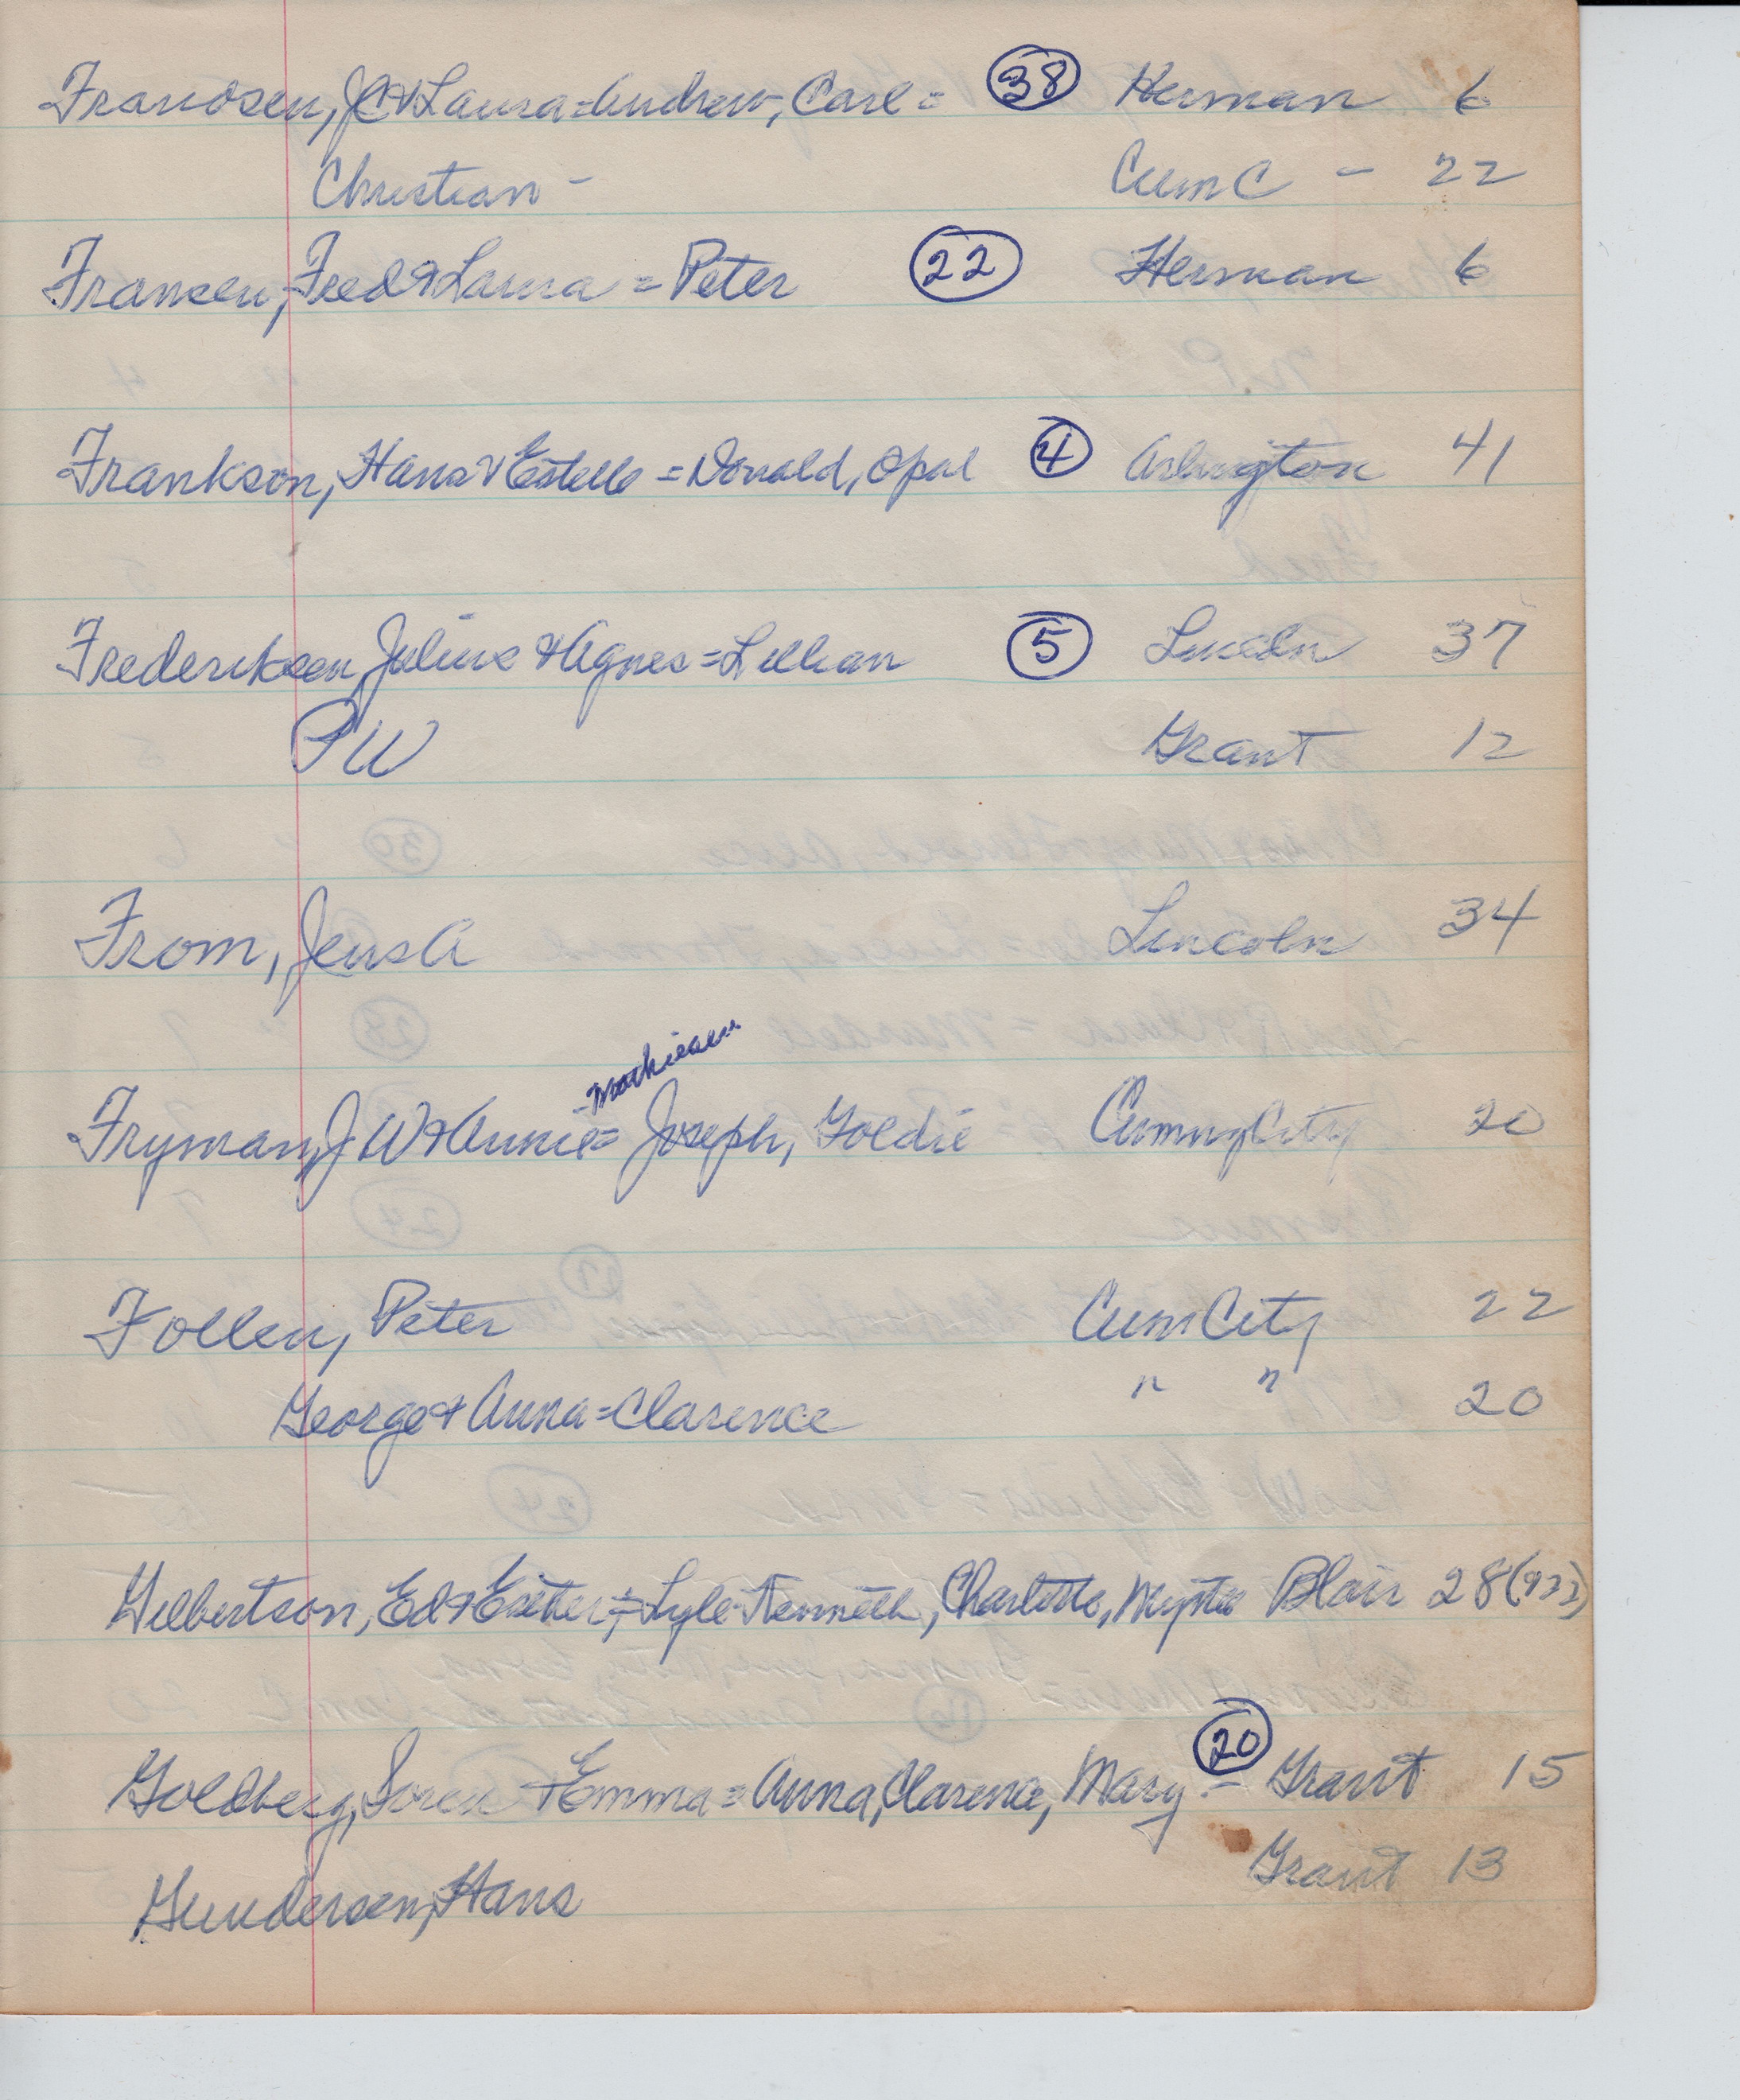 Frandsen, JC & Laura = Andrew, Carl = (38) Herman 6
Christian - Cum C - 22
Fransen, Fred & Laura = Peter (22) Herman 6
Frankson, Hans & Estelle = Donald, Opal (4) Arlington 41
Frederiksen, Julius & Agnes = Lillian (5) Lincoln 37
PW Grant 12
From, Jens A Lincoln 34
-Mathiesen
Fryman, J W & Annie = Joseph, Goldie Cuming City 20
Follen, Peter Cum City 22
George & Anna = Clarence " " 20
Gilbertson, Ed & Esther = Lyle Kenneth, Charlotte, Blair 28 (933)
Goldberg, Soren & Emma = Anna, Clarence, Mary - (20) Grant 15
Gundersen, Hans Grant 13